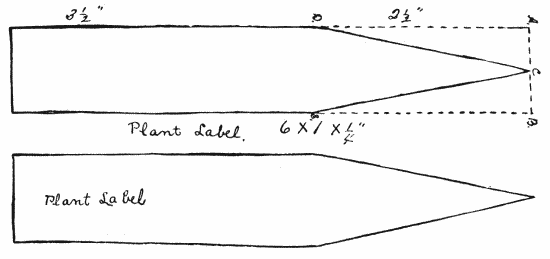 3½" 2½"
A
C
B
Plant Label. 6 X 1 X ¼"
Plant Label